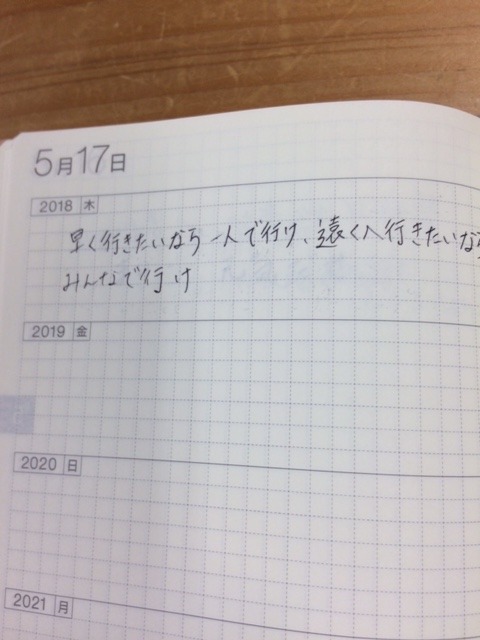 5月17日
2018 木
早く行きたいなら一人で行け、遠くへ行きたいなら
みんなで行け
2019 金
2020 日
2021 月